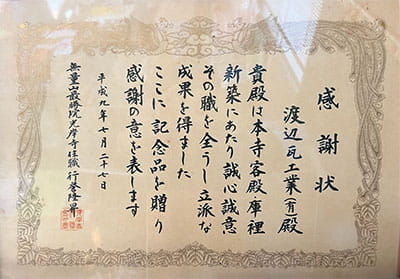 感謝状
渡辺瓦工業(有)殿
貴殿は本寺客殿庫裡
新築にあたり誠心誠意
その職を全うし立派な
成果を得ました
ここに記念品を贈り
感謝の意を表します
平成九年七月二十七日
無量山最勝院光岸寺住職 行誉隆昇